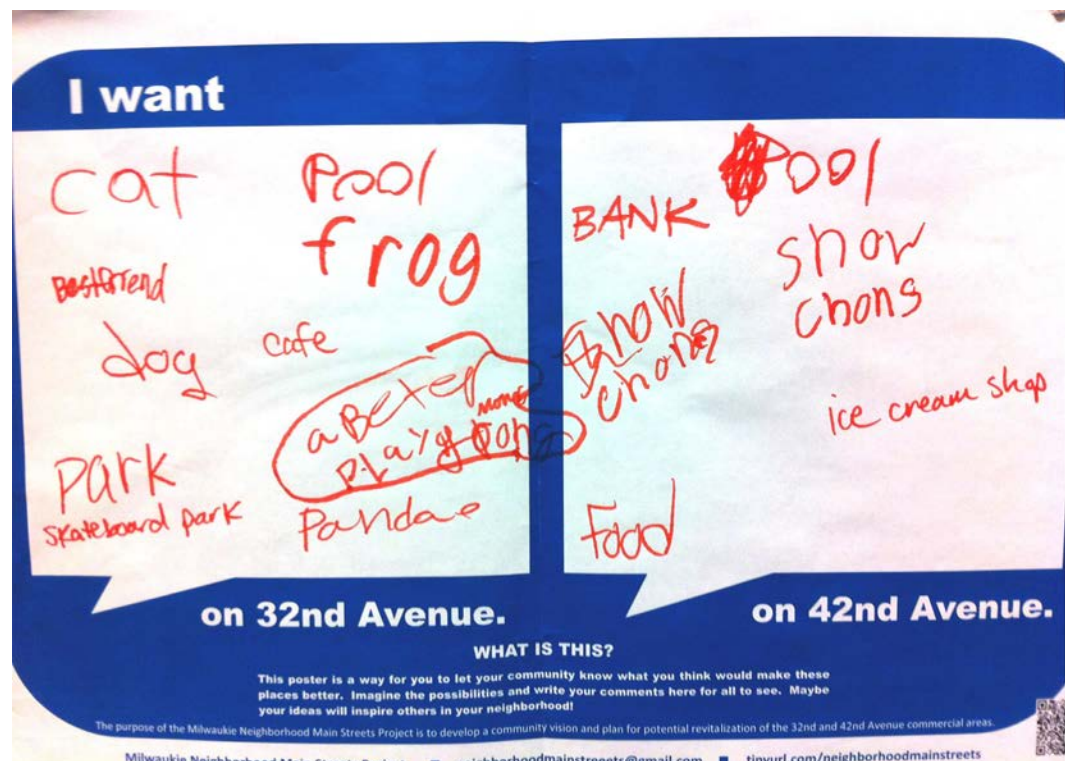 I want
cat
Pool
frog
Bestfriend
dog
cafe
a Beter
mone
playgrong
Park
skateboard park
Pandae
BANK
Pool
Show
chons
Show
chons
ice cream shop
Food
on 32nd Avenue.
on 42nd Avenue.
WHAT IS THIS?
This poster is a way for you to let your community know what you think would make these
places better. Imagine the possibilities and write your comments here for all to see. Maybe
your ideas will inspire others in your neighborhood!
The purpose of the Milwaukie Neighborhood Main Streets Project is to develop a community vision and plan for potential revitalization of the 32nd and 42nd Avenue commercial areas.
Milwaukie Neighborhood Main Streets Project ■ neighborhoodmainstreets@gmail.com ■ tinyurl.com/neighborhoodmainstreets